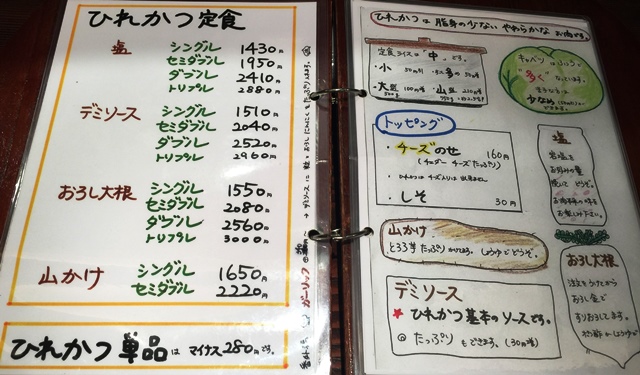 ひれかつ定食
塩 シングル 1430円
セミダブル 1950円
ダブル 2410円
トリプル 2880円
デミソース シングル 1510円
セミダブル 2040円
ダブル 2520円
トリプル 2960円
おろし大根 シングル 1550円
セミダブル 2080円
ダブル 2560円
トリプル 3000円
山かけ シングル 1650円
セミダブル 2220円
ひれかつ単品は マイナス280円です。
ガーリック
ひれかつは 脂身の少ない やわらかな お肉です。
定食 ライスは "中" です。
・小 50円引
・大盛 100円増
キャベツは
"多く" なっています。
少なめ
トッピング
・チーズのせ 160円
(チェダー チーズ たっぷり)
・しそ 30円
塩
岩塩を
お好みの量
お楽しみ下さい。
山かけ
とろろ芋 たっぷり かけてます。しょうゆでどうぞ。
デミソース
★ ひれかつ 基本の ソースです。
◎ たっぷり もできます。(30円増)
おろし大根
注文をうけてから
おろし金で
すりおろしてます。